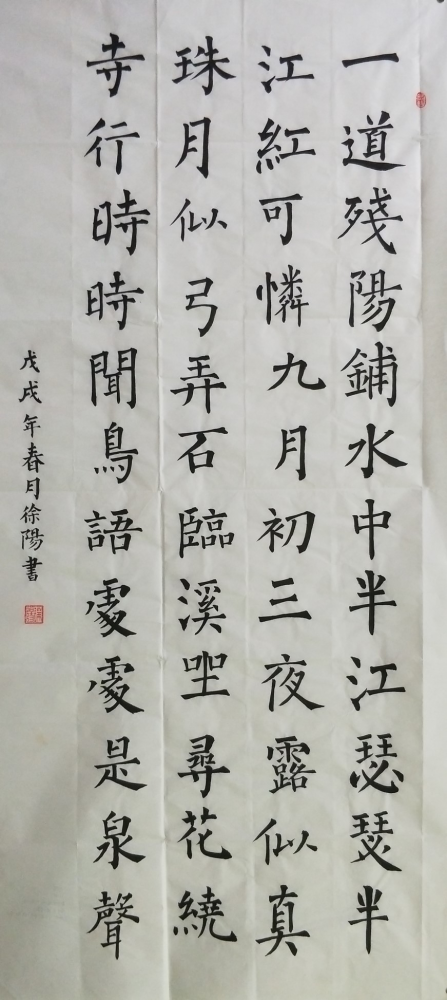 一道殘陽鋪水中半江瑟瑟半
江紅可憐九月初三夜露似真
珠月似弓弄石臨溪坐尋花繞
寺行時時聞鳥語處處是泉聲
戊戌年春月徐陽書